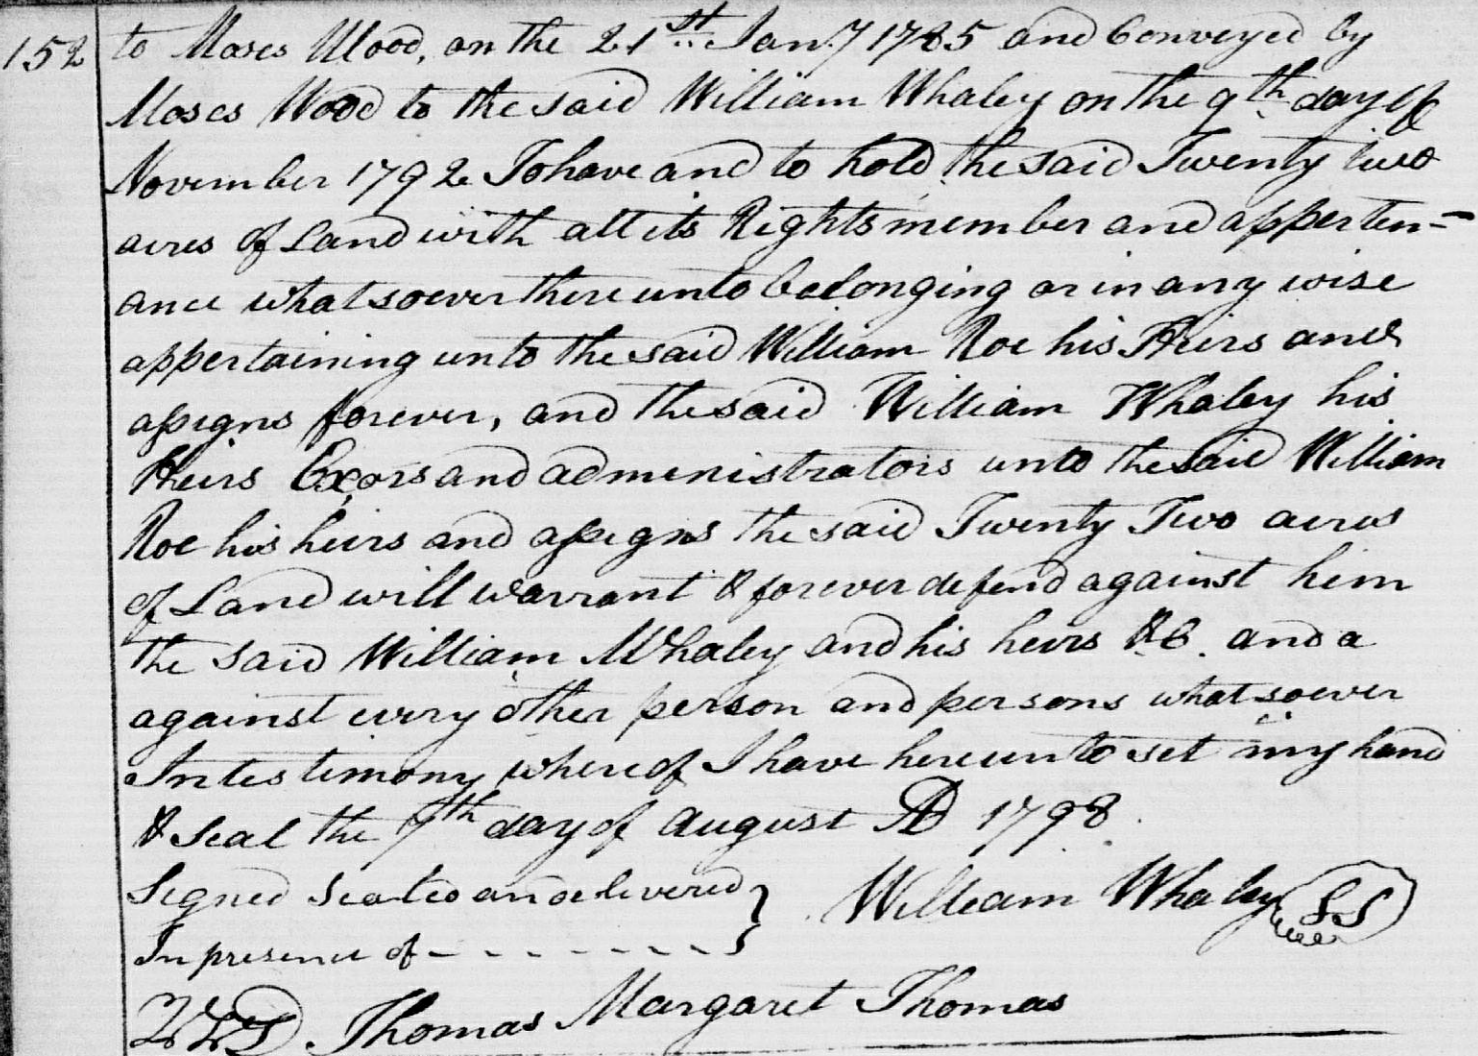 152
to Moses Wood, on the 21st Jany 1785 and Conveyed by
Moses Wood to the said William Whaley on the 9th day of
November 1792 To have and to hold the said Twenty two
acres of Land with all its Rights member and apperten-
ance whatsoever thereunto belonging or in any wise
appertaining unto the said William Roe his Heirs and
assigns forever, and the said William Whaley his
Heirs Exors and administrators unto the said William
Roe his heirs and assigns the said Twenty Two acres
of Land will warrant & forever defend against him
the said William Whaley and his heirs &C. and a
against every other person and persons whatsoever
In testimony whereof I have hereunto set my hand
& Seal the 7th day of August AD 1798.
Signed Sealed and delivered }
In presence of - - - - - - - }
William Whaley LS
Thomas Margaret Thomas